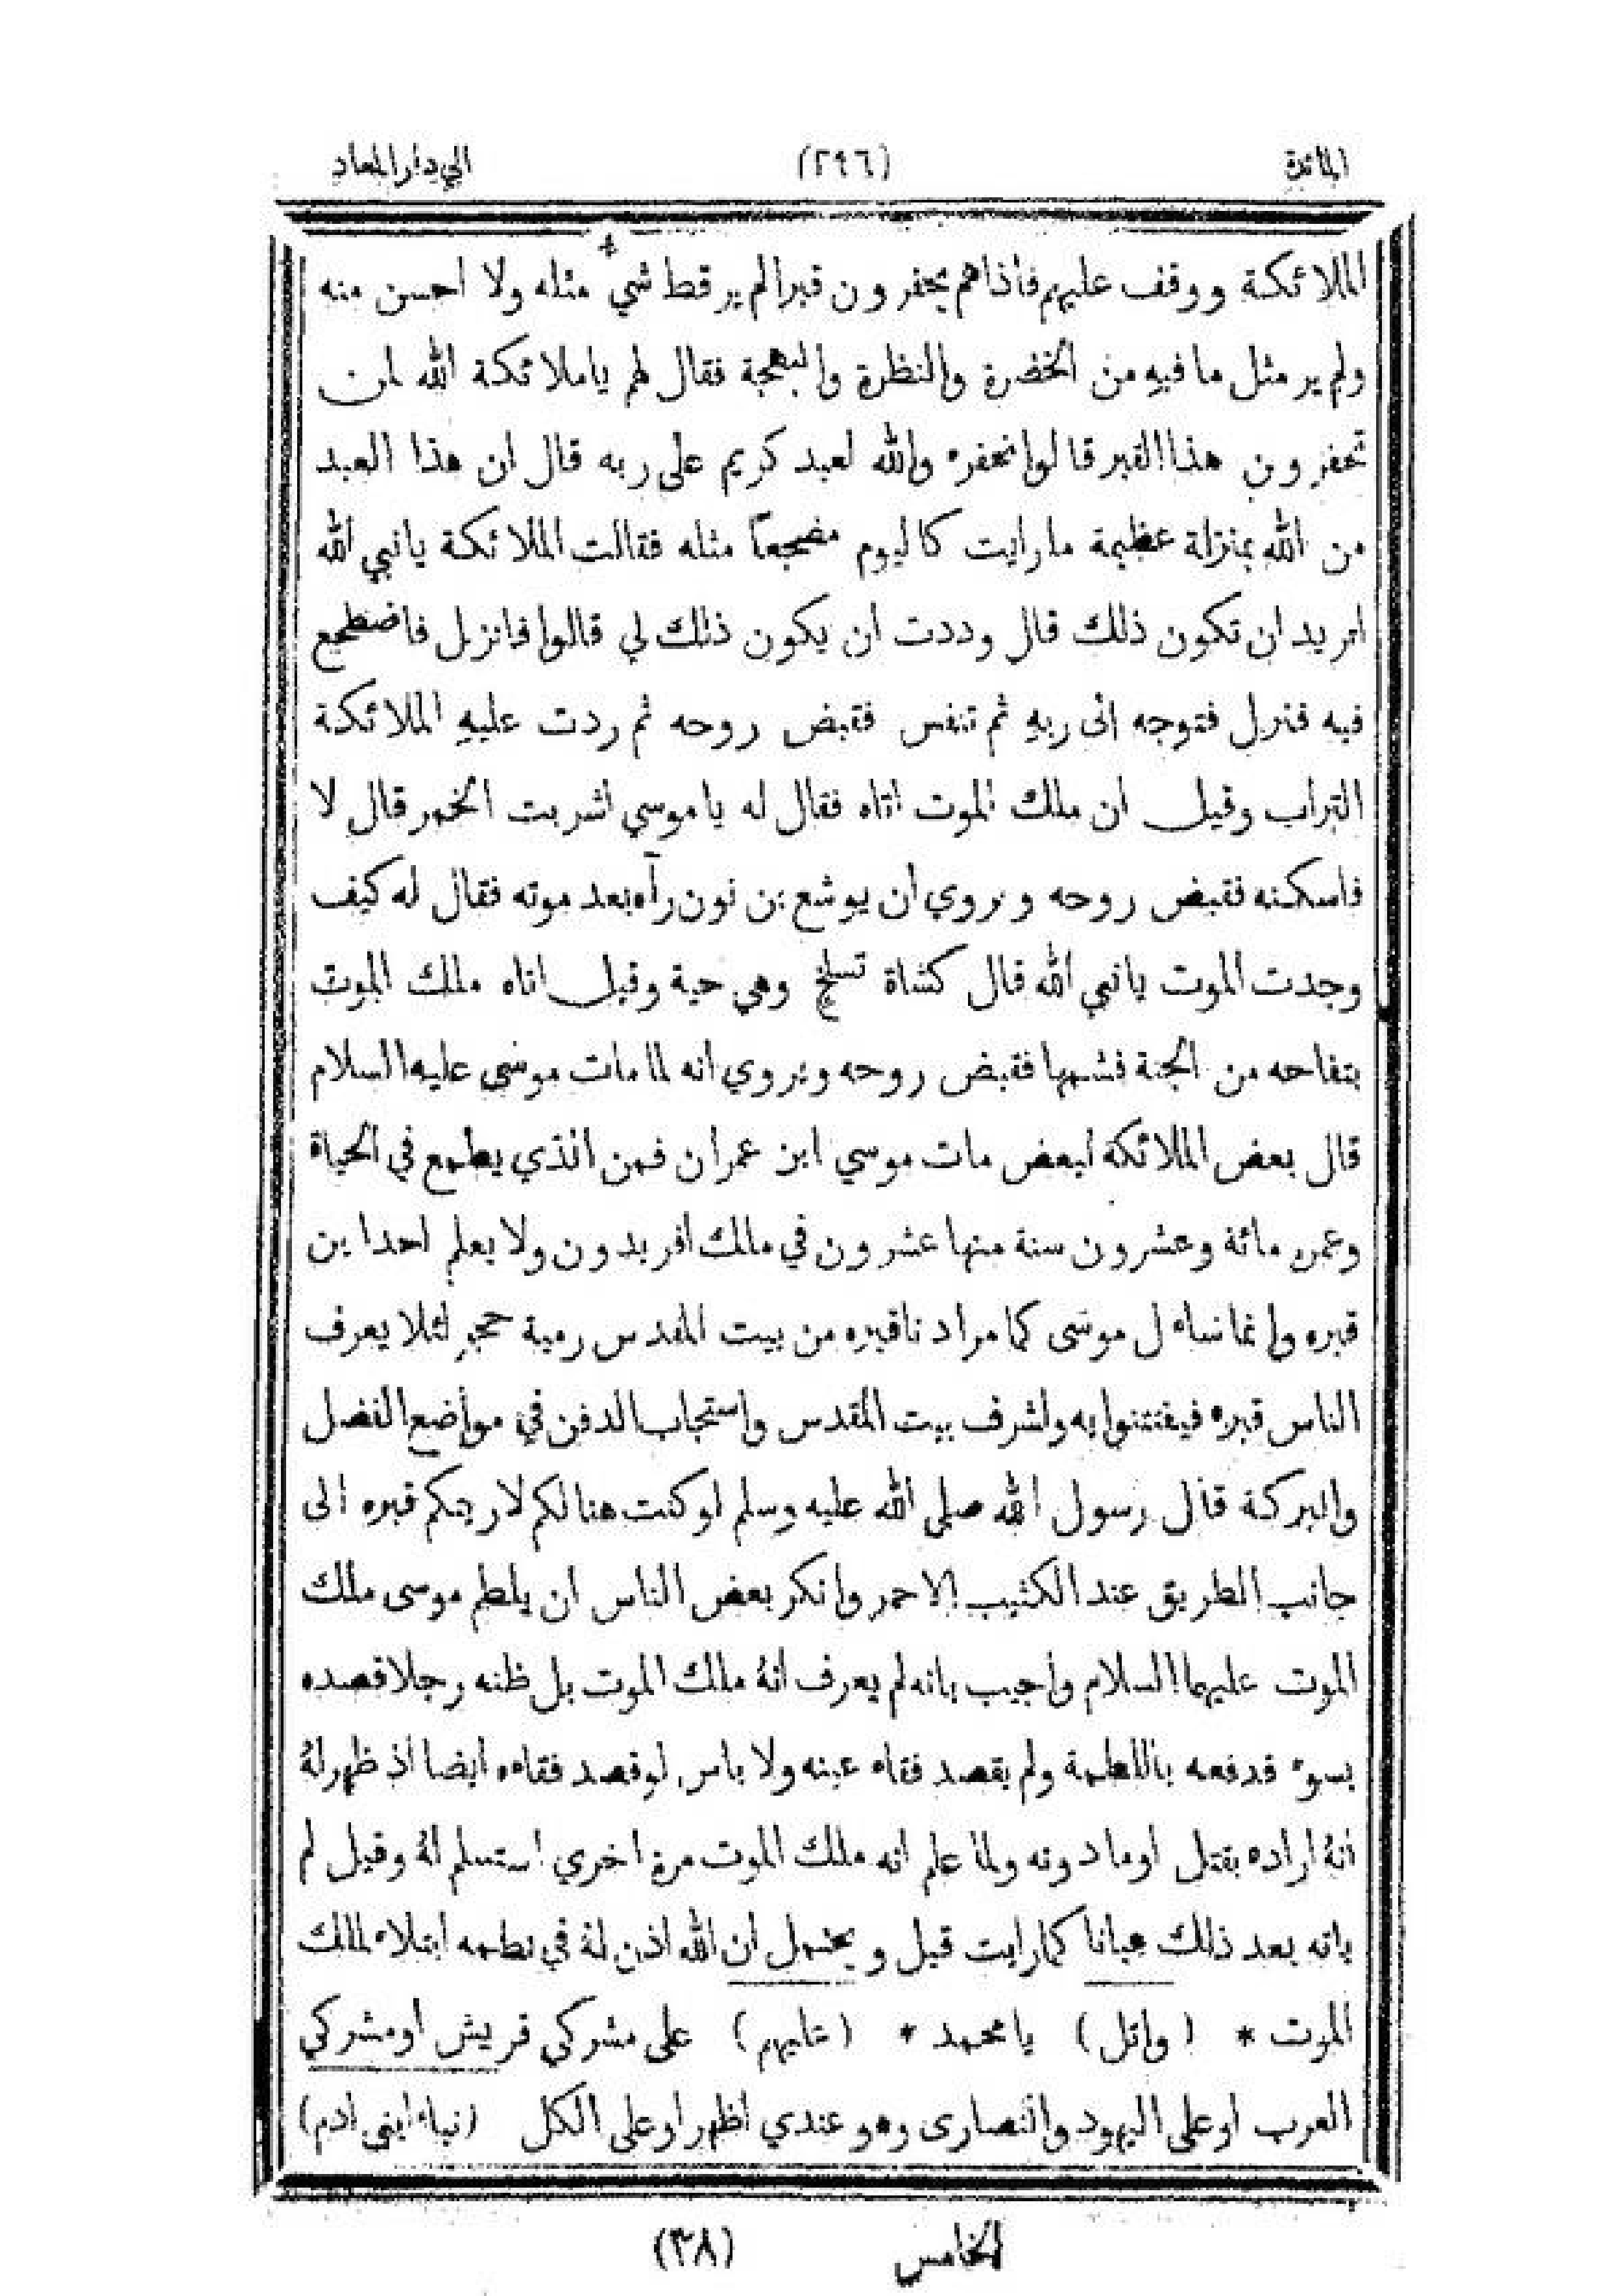 المائدة (٢٩٦) الي دار المعاد
الملائكة ووقف عليهم فاذاهم يحفرون قبرا لم ير قط شيء مثله ولا احسن منه
ولم ير مثل ما فيه من الخضرة والنظرة والبهجة فقال لهم يا ملائكة الله لمن
تحفرون هذا القبر قالوا نحفره والله لعبد كريم على ربه قال ان هذا العبد
من الله بمنزلة عظيمة ما رايت كاليوم مضجعا مثله فقالت الملائكة يا نبي الله
اتريد ان تكون ذلك قال وددت ان يكون ذلك لي قالوا فانزل فاضطجع
فيه فنزل فتوجه الى ربه ثم تنفس فقبض روحه ثم ردت عليه الملائكة
التراب وقيل ان ملك الموت اتاه فقال له يا موسي اشربت الخمر قال لا
فاسكنه فقبض روحه ويروي ان يوشع بن نون رآه بعد موته فقال له كيف
وجدت الموت يا نبي الله قال كشاة تسلخ وهي حية وقيل اتاه ملك الموت
بتفاحه من الجنة فشمها فقبض روحه ويروي انه لما مات موسى عليه السلام
قال بعض الملائكة لبعض مات موسي ابن عمران فمن الذي يطمع في الحياة
وعمره مائة وعشرون سنة منها عشرون في مالك افريدون ولا يعلم احد اين
قبره وانما ساءل موسى كما مر ادناقبره من بيت المقدس رمية حجر لئلا يعرف
الناس قبره فيفتتنوا به ولشرف بيت المقدس واستجاب الدفن في مواضع الفضل
والبركة قال رسول الله صلى الله عليه وسلم لو كنت هنالكم لاريتكم قبره الى
جانب الطريق عند الكثيب الاحمر وانكر بعض الناس ان يلطم موسى ملك
الموت عليهما السلام واجيب بانه لم يعرف انه ملك الموت بل ظنه رجلا قصده
بسوء فدفعه باللطمة ولم يقصد فقاء عينه ولا باس لو قصد فقاءه ايضا اذ ظهر له
انه اراده بقتل او ما دونه ولما علم انه ملك الموت مرة اخري استسلم له وقيل لم
ياته بعد ذلك عيانا كما رايت قبل ويحتمل ان الله اذن له في لطمه ابتلاء لملك
الموت * (واتل) يا محمد * (عليهم) على مشركي قريش او مشركي
العرب او على اليهود والنصارى وهو عندي اظهر او على الكل (نباء ابني ادم)
الخامس (٣٨)